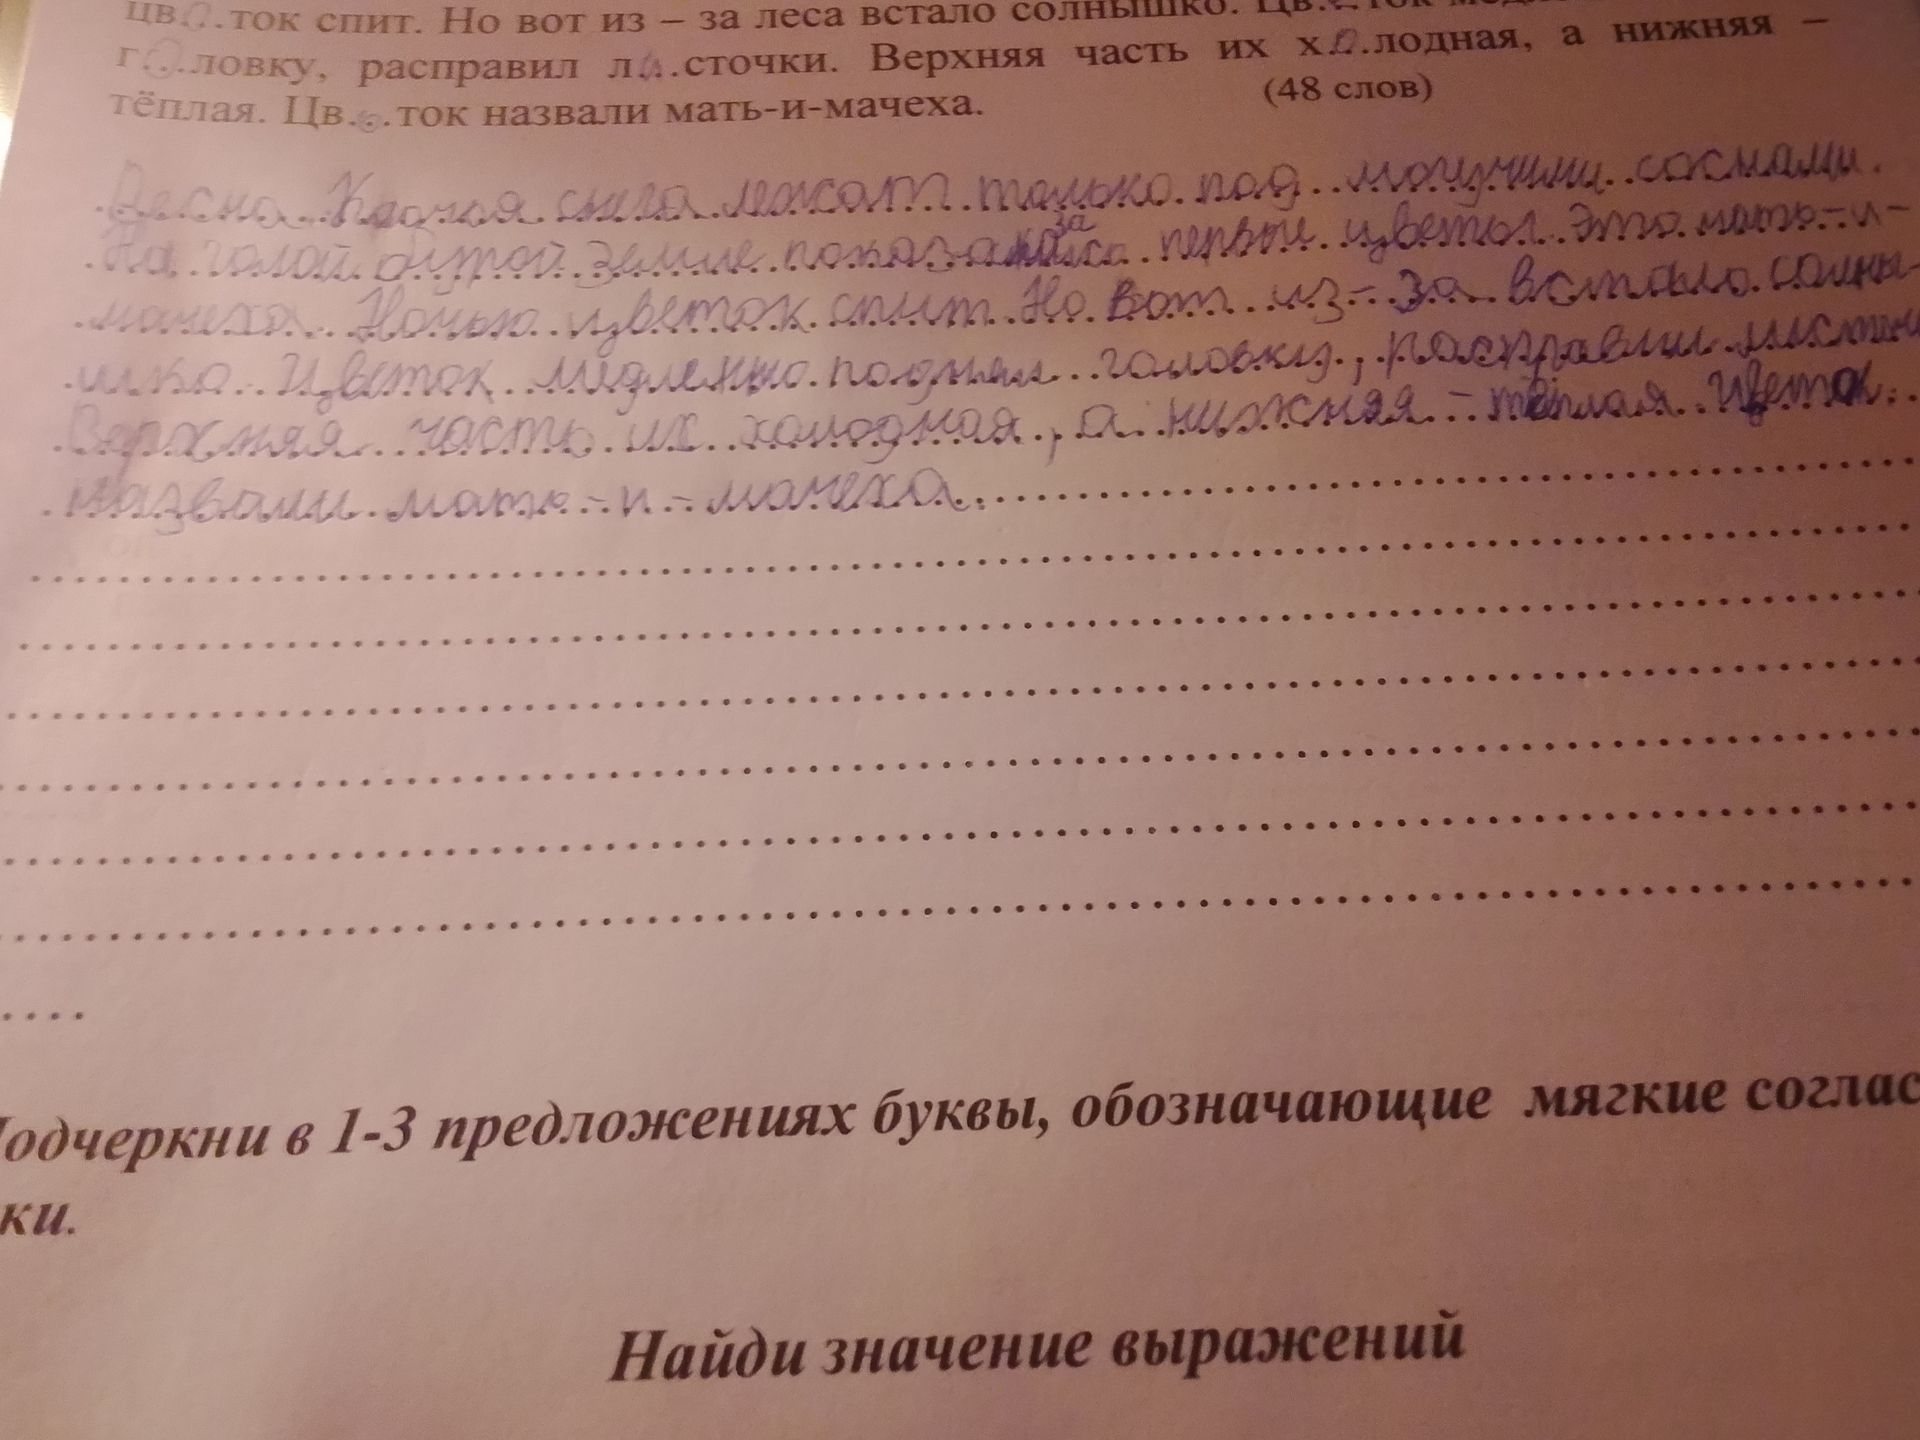 цв...ток спит. Но вот из – за леса встало солнышко. Цв...ток
г...ловку, расправил ли..сточки. Верхняя часть их хо.лодная, а нижняя –
тёплая. Цв.е.ток назвали мать-и-мачеха. (48 слов)
Весна. Клочья снега лежат только под могучими соснами.
На голой бурой земле показа первые цветы. Это мать-и-
мачеха. Ночью цветок спит. Но вот из-за встало солны-
шко. Цветок медленно поднял головку, расправил листочки
Верхняя часть их холодная, а нижняя - тёплая. Цветок
назвали мать-и-мачеха.
Подчеркни в 1-3 предложениях буквы, обозначающие мягкие соглас
ки.
Найди значение выражений